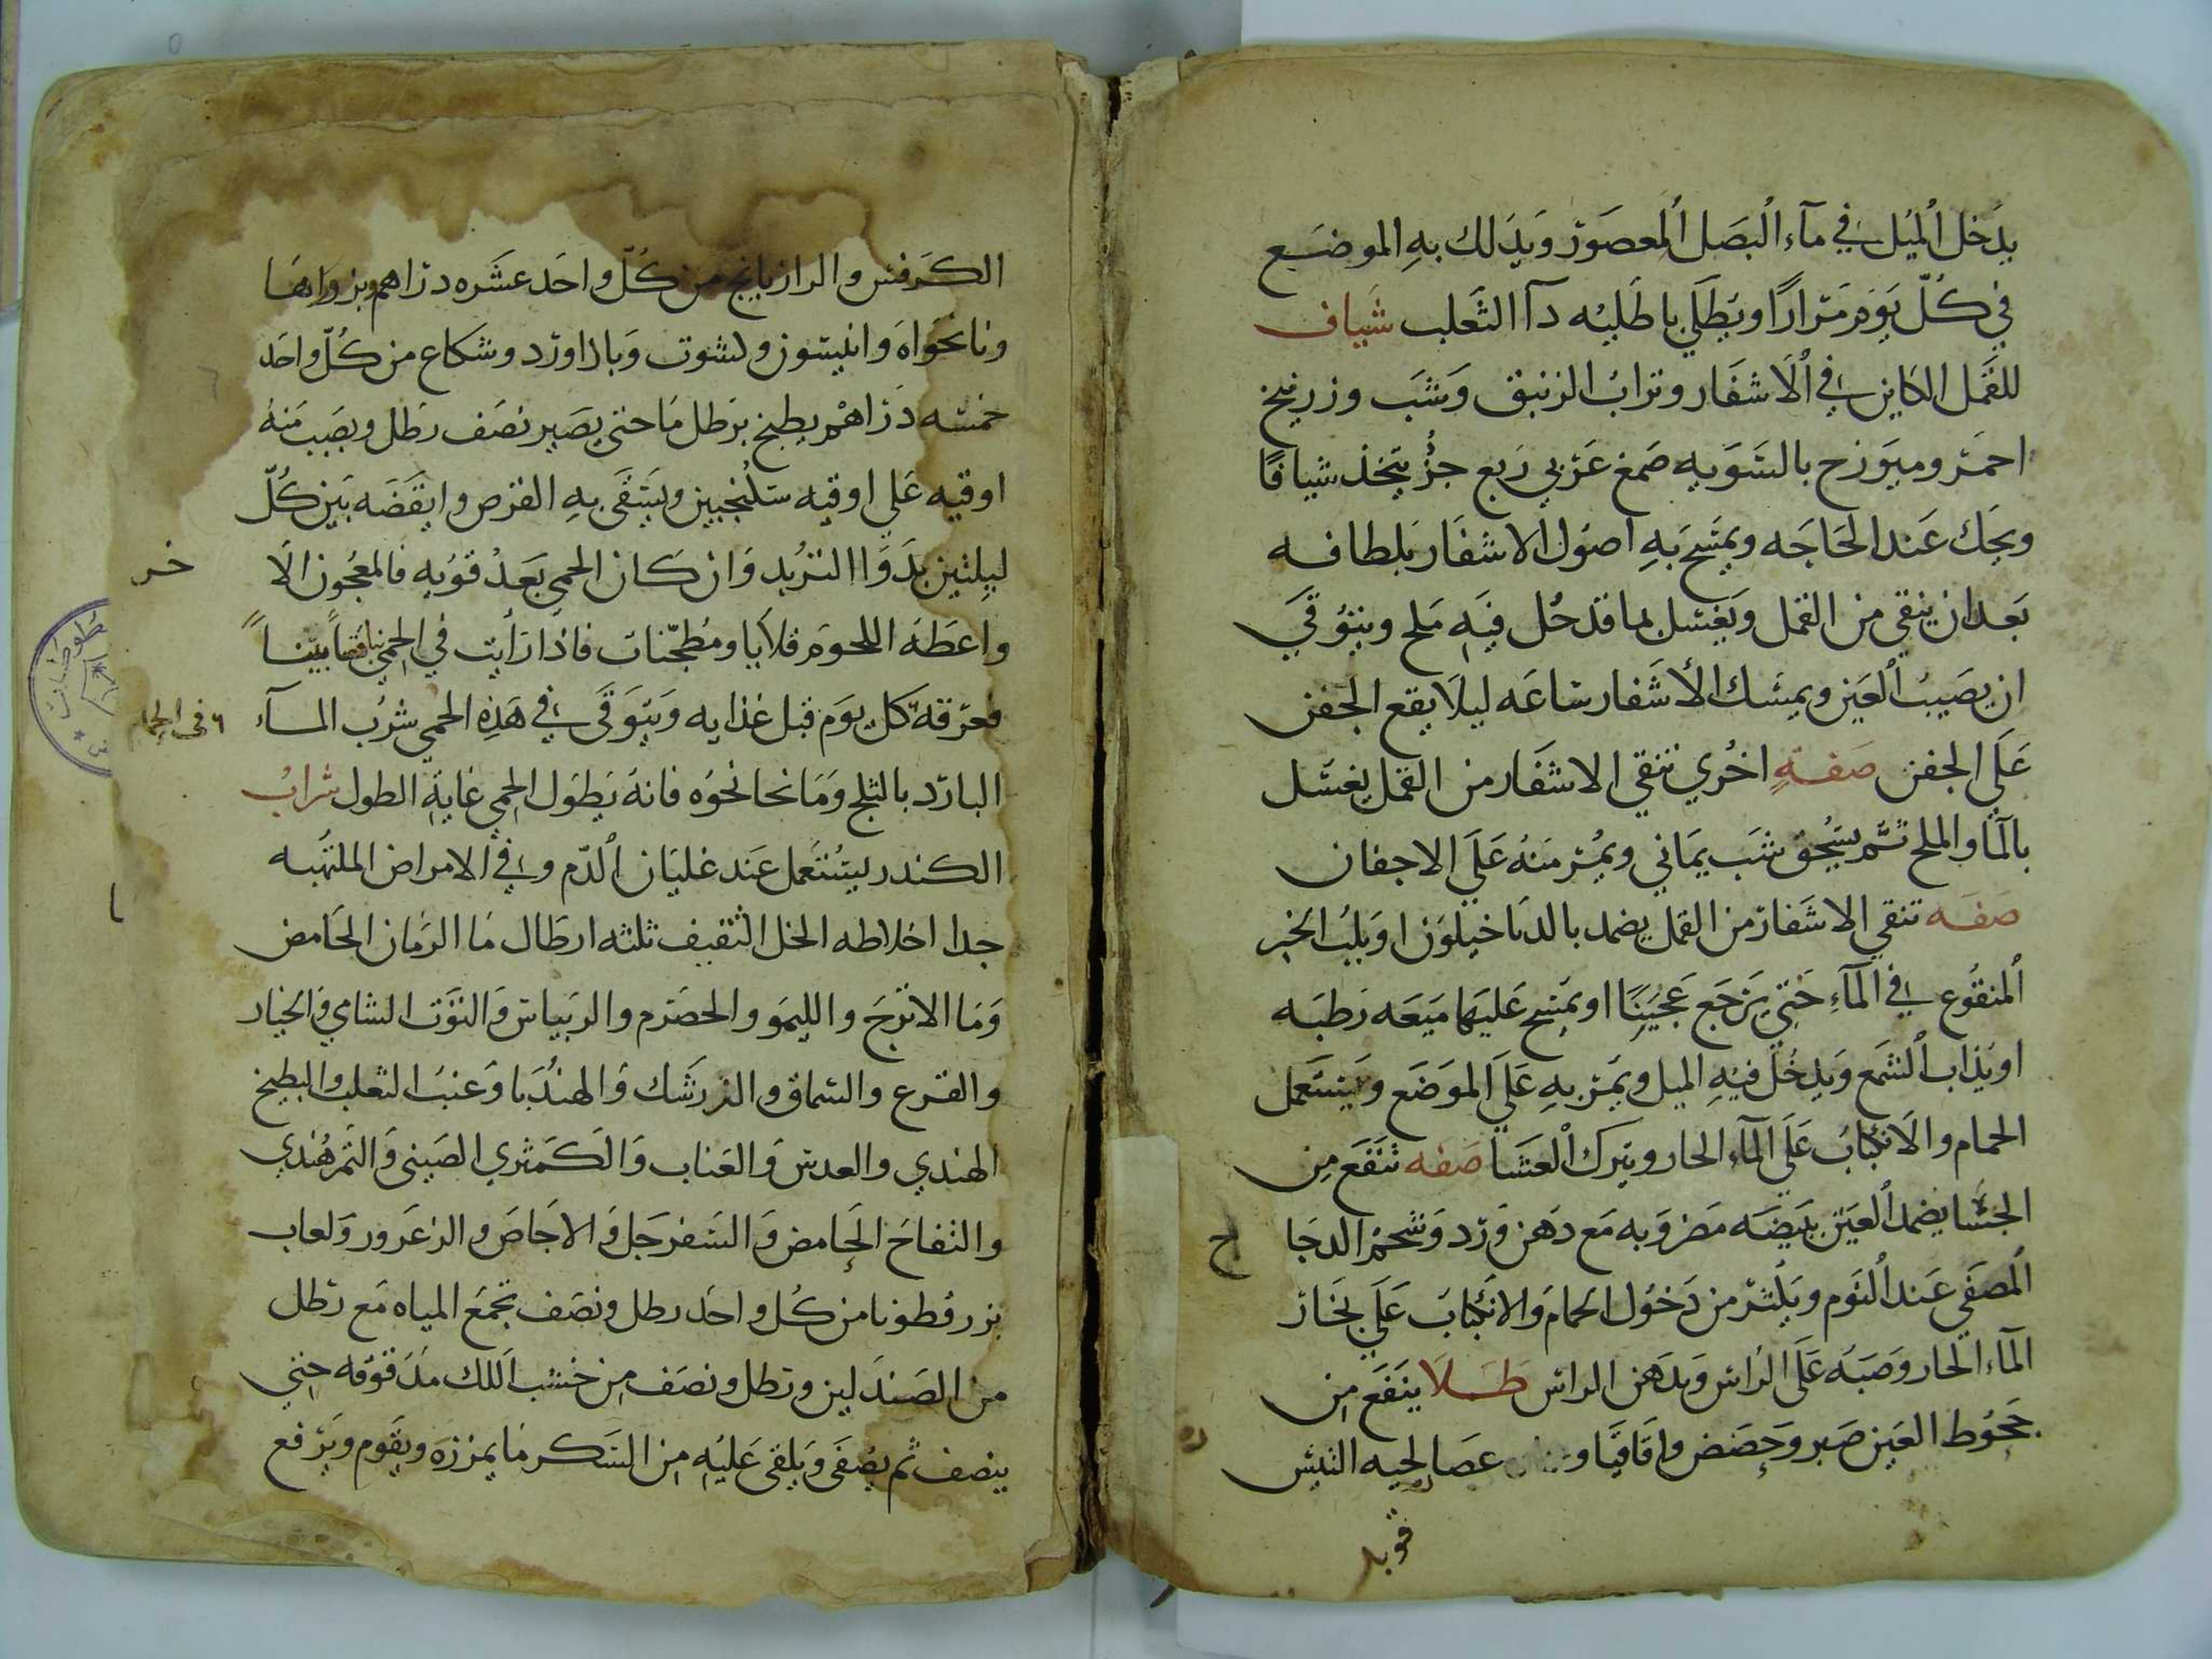 يدخل الميل في مآء البصل المعصور ويدلك به الموضع
في كل يوم مرارا ويطلي باطليه دآ الثعلب شياف
للقمل الكاين في الاشفار وتراب الزنبق وشب وزرنيخ
احمر وميوزح بالسويه صمغ عربي ربع جزء يتخذ شيافا
ويحك عند الحاجه ويمسح به اصول الاشفار بلطافه
بعد ان ينقي من القمل ويغسل بما قد حل فيه ملح ويتوقي
ان يصيب العين ويمسك الأشفار ساعه ليلا يقع الجفن
علي الجفن صفة اخري تنقي الاشفار من القمل يغسل
بالمآ والملح ثم يسحق شب يماني ويمر منه علي الاجفان
صفه تنقي الاشفار من القمل يضمد بالداخيلون او بلب الخبز
المنقوع في المآء حتي يرجع عجينا او يمسح عليها ميعه رطبه
او يذاب الشمع ويدخل فيه الميل ويمر به علي الموضع ويستعمل
الحمام والانكباب علي المآء الحار ويترك العشا صفه تنفع من
الجسا يضمد العين ببيضه مضروبه مع دهن ورد وشحم الدجا
ج
المصفي عند النوم ويكثر من دخول الحمام والانكباب علي بخار
المآء الحار وصبه علي الراس ويدهن الراس طلا ينفع من
جحوظ العين صبر وحضض واقاقيا وعصا لحيه التيس
ره
قوبل
الكرفس والرازيانج من كل واحد عشره دراهم وبزورهما
ونانخواه وانيسون وكشوت وباداورد وشكاع من كل واحد
خمسه دراهم يطبخ برطل ما حتي يصير نصف رطل ويصب منه
اوقيه علي اوقيه سكنجبين ويسقي به القرص وانقضه بين كل
ليلتين بدوا التربد وان كان الحمي بعد قويه فالمعجون الا
خر
واعطه اللحوم قلايا ومطجنات فاذا رايت في الحمي نافضا بينا
فعرقه كل يوم قبل غذايه ويتوقي في هذه الحمي شرب المآء
في الحمام
البارد بالثلج وما نحا نحوه فانه يطول الحمي غاية الطول شراب
الكندر يستعمل عند غليان الدم وفي الامراض الملتهبه
جدا اخلاطه الخل الثقيف ثلثه ارطال ما الرمان الحامض
وما الاترج والليمو والحصرم والريباس والتوت الشامي والخيار
والقرع والسماق والزرشك والهندبا وعنب الثعلب والبطيخ
الهندي والعدس والعناب والكمثري الصيني والتمر هندي
والتفاح الحامض والسفرجل والاجاص والزعرور ولعاب
بزر قطونا من كل واحد رطل ونصف تجمع المياه مع رطل
من الصندلين ورطل ونصف من خشب اللك مدقوقه حتي
ينصف ثم يصفي ويلقي عليه من السكر ما يمززه ويقوم ويرفع